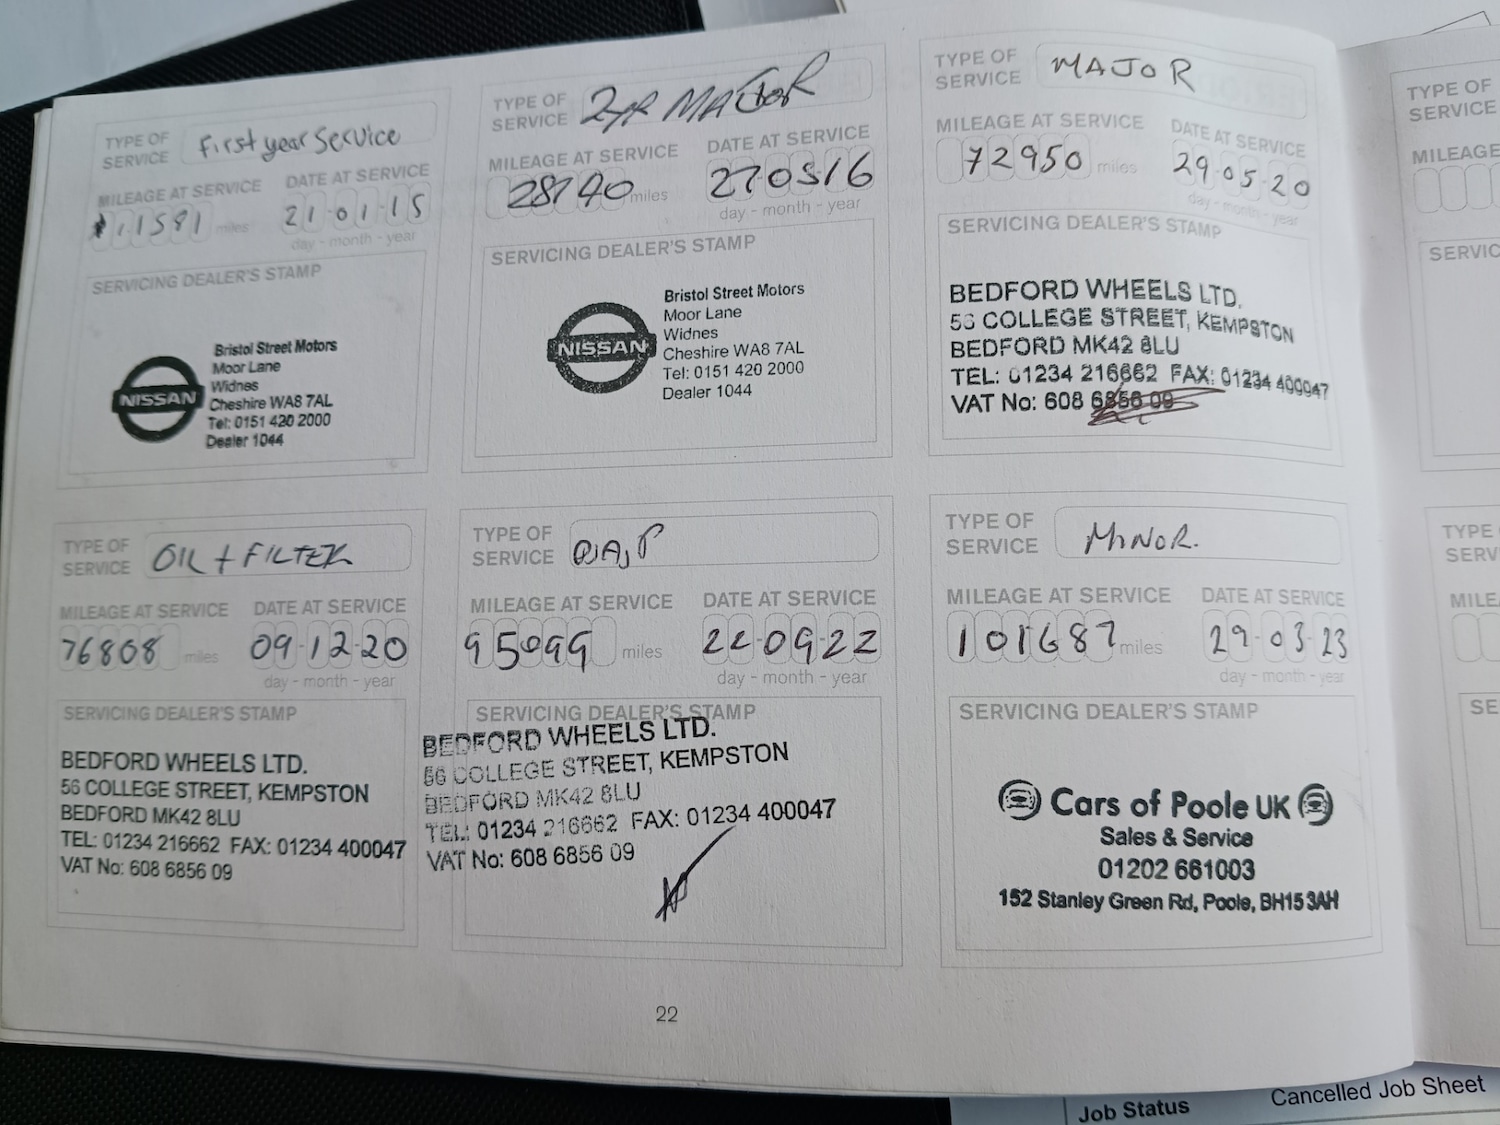 TYPE OF SERVICE First year Service
MILEAGE AT SERVICE DATE AT SERVICE
11591 miles 21-01-15
day - month - year
SERVICING DEALER'S STAMP
NISSAN
Bristol Street Motors
Moor Lane
Widnes
Cheshire WA8 7AL
Tel: 0151 420 2000
Dealer 1044
TYPE OF SERVICE 2yr MAJOR
MILEAGE AT SERVICE DATE AT SERVICE
28740 miles 270516
day - month - year
SERVICING DEALER'S STAMP
NISSAN
Bristol Street Motors
Moor Lane
Widnes
Cheshire WA8 7AL
Tel: 0151 420 2000
Dealer 1044
TYPE OF SERVICE MAJOR
MILEAGE AT SERVICE DATE AT SERVICE
72950 miles 29-05-20
day - month - year
SERVICING DEALER'S STAMP
BEDFORD WHEELS LTD.
56 COLLEGE STREET, KEMPSTON
BEDFORD MK42 8LU
TEL: 01234 216662 FAX: 01234 400047
VAT No: 608 6856 09
TYPE OF SERVICE OIL + FILTER
MILEAGE AT SERVICE DATE AT SERVICE
76808 miles 09-12-20
day - month - year
SERVICING DEALER'S STAMP
BEDFORD WHEELS LTD.
56 COLLEGE STREET, KEMPSTON
BEDFORD MK42 8LU
TEL: 01234 216662 FAX: 01234 400047
VAT No: 608 6856 09
TYPE OF SERVICE
MILEAGE AT SERVICE DATE AT SERVICE
95099 miles 22-09-22
day - month - year
SERVICING DEALER'S STAMP
BEDFORD WHEELS LTD.
56 COLLEGE STREET, KEMPSTON
BEDFORD MK42 8LU
TEL: 01234 216662 FAX: 01234 400047
VAT No: 608 6856 09
TYPE OF SERVICE MINOR.
MILEAGE AT SERVICE DATE AT SERVICE
101687 miles 29-03-23
day - month - year
SERVICING DEALER'S STAMP
Cars of Poole UK
Sales & Service
01202 661003
152 Stanley Green Rd, Poole, BH15 3AH
22
TYPE OF
SERVICE
MILEAGE
SERVIC
TYPE
SERV
MILE
SE
Job Status Cancelled Job Sheet